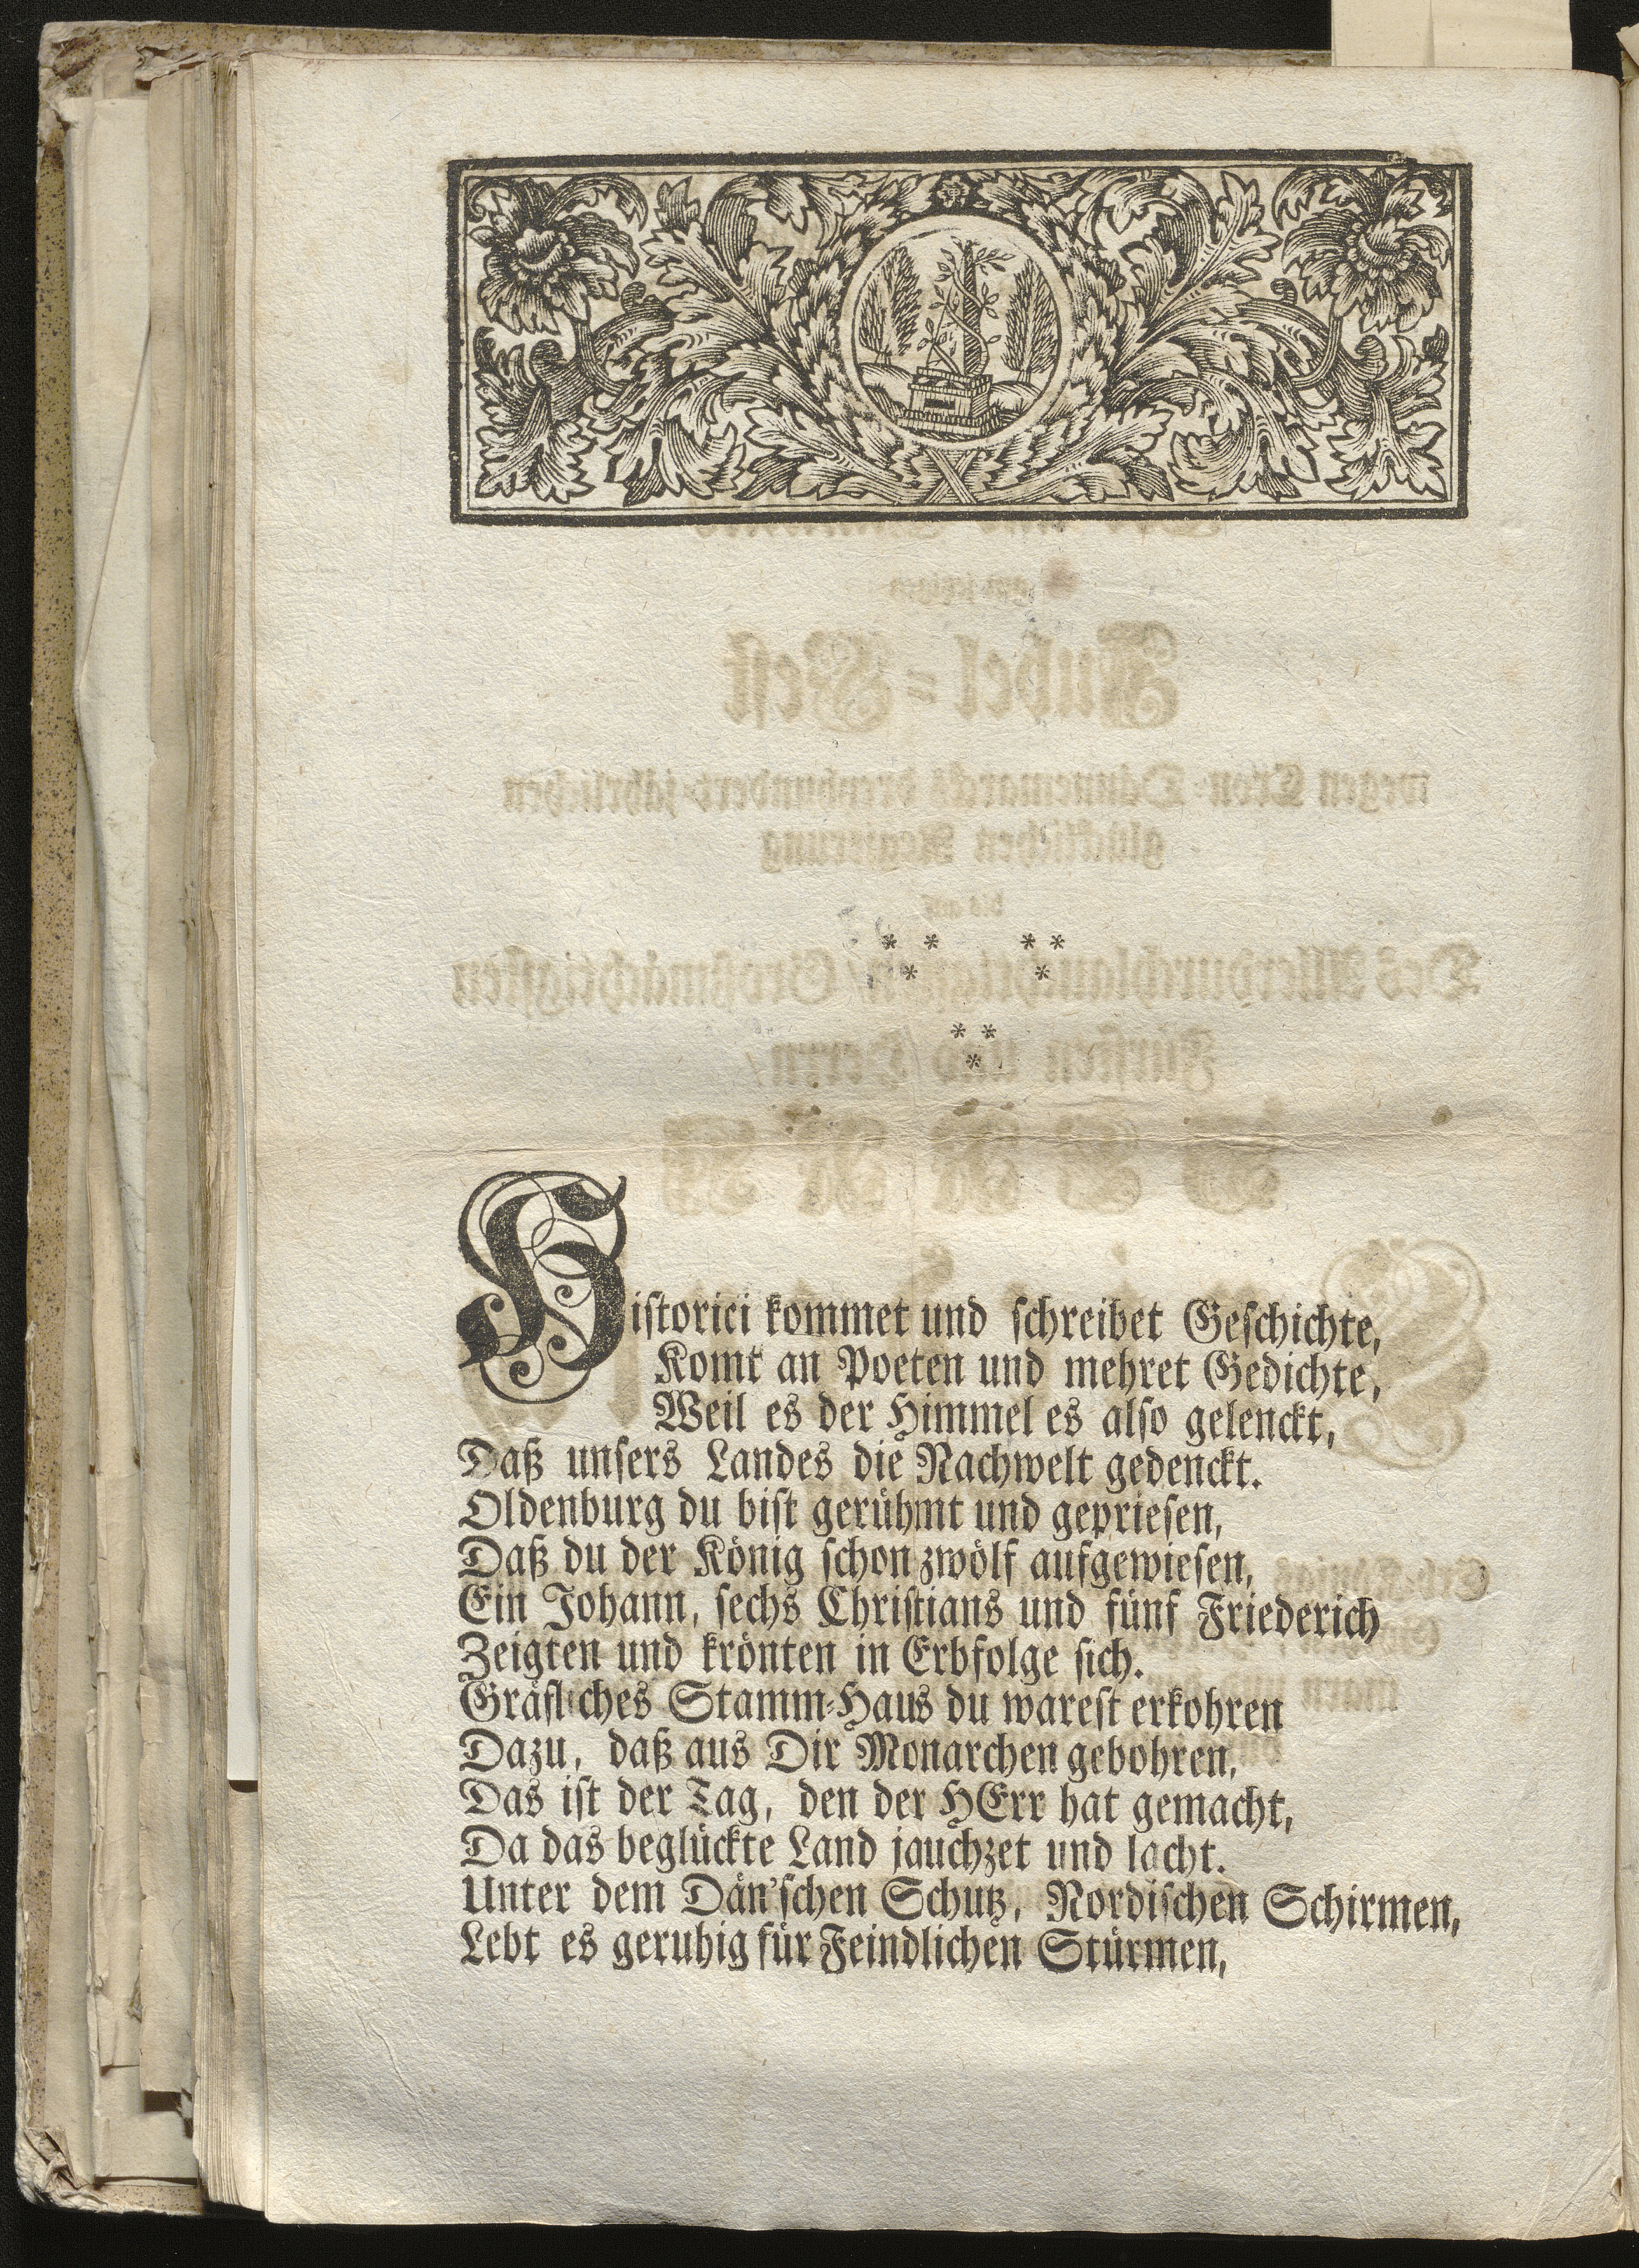 * * * *
* *
* *
*
Historici kommet und schreibet Geschichte,
Komt an Poeten und mehret Gedichte,
Weil es der Himmel es also gelenckt,
Daß unsers Landes die Nachwelt gedenckt.
Oldenburg du bist gerühmt und gepriesen,
Daß du der König schon zwölf aufgewiesen,
Ein Johann, sechs Christians und fünf Friederich
Zeigten und krönten in Erbfolge sich.
Gräfliches Stamm-Haus du warest erkohren
Dazu, daß aus Dir Monarchen gebohren,
Das ist der Tag, den der HErr hat gemacht,
Da das beglückte Land jauchzet und lacht.
Unter dem Dän'schen Schutz, Nordischen Schirmen,
Lebt es geruhig für Feindlichen Stürmen,